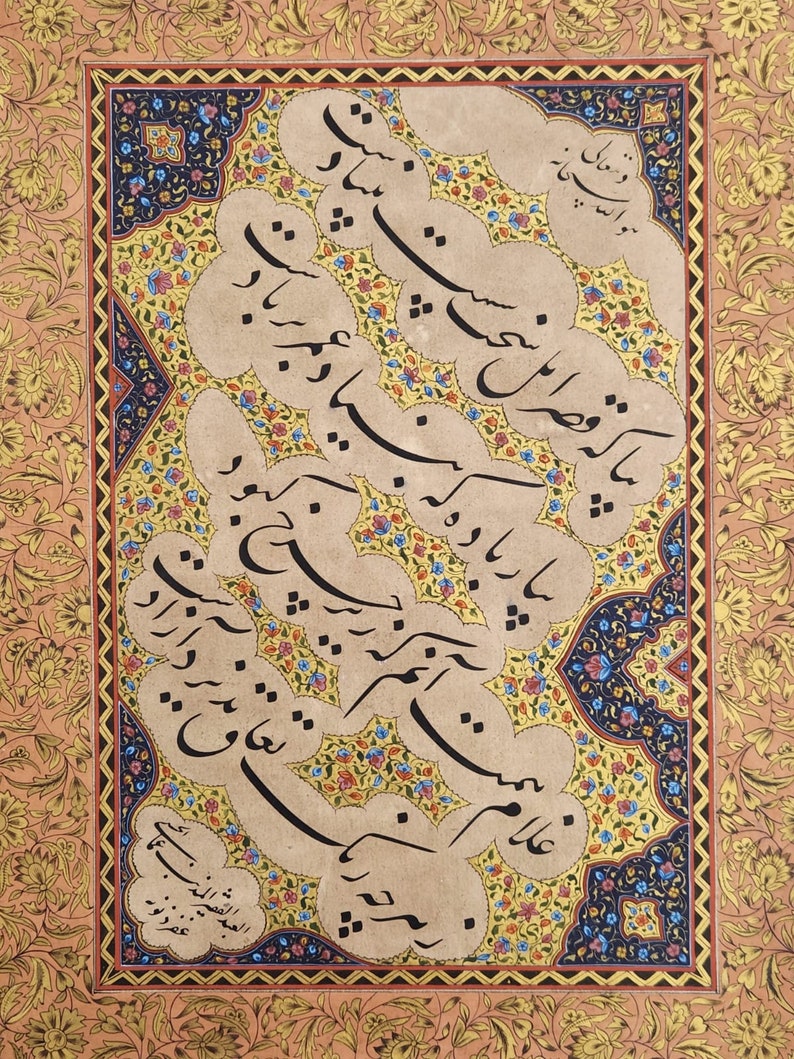 هو الله سبحانه
و تعالی
بیا که قصر امل سخت سست بنیادست
بیار باده که بنیاد عمر بر بادست
غلام همت آنم که زیر چرخ کبود
ز هر چه رنگ تعلق پذیرد آزادست
العبد الفقیر المذنب
غفر ذنوبه